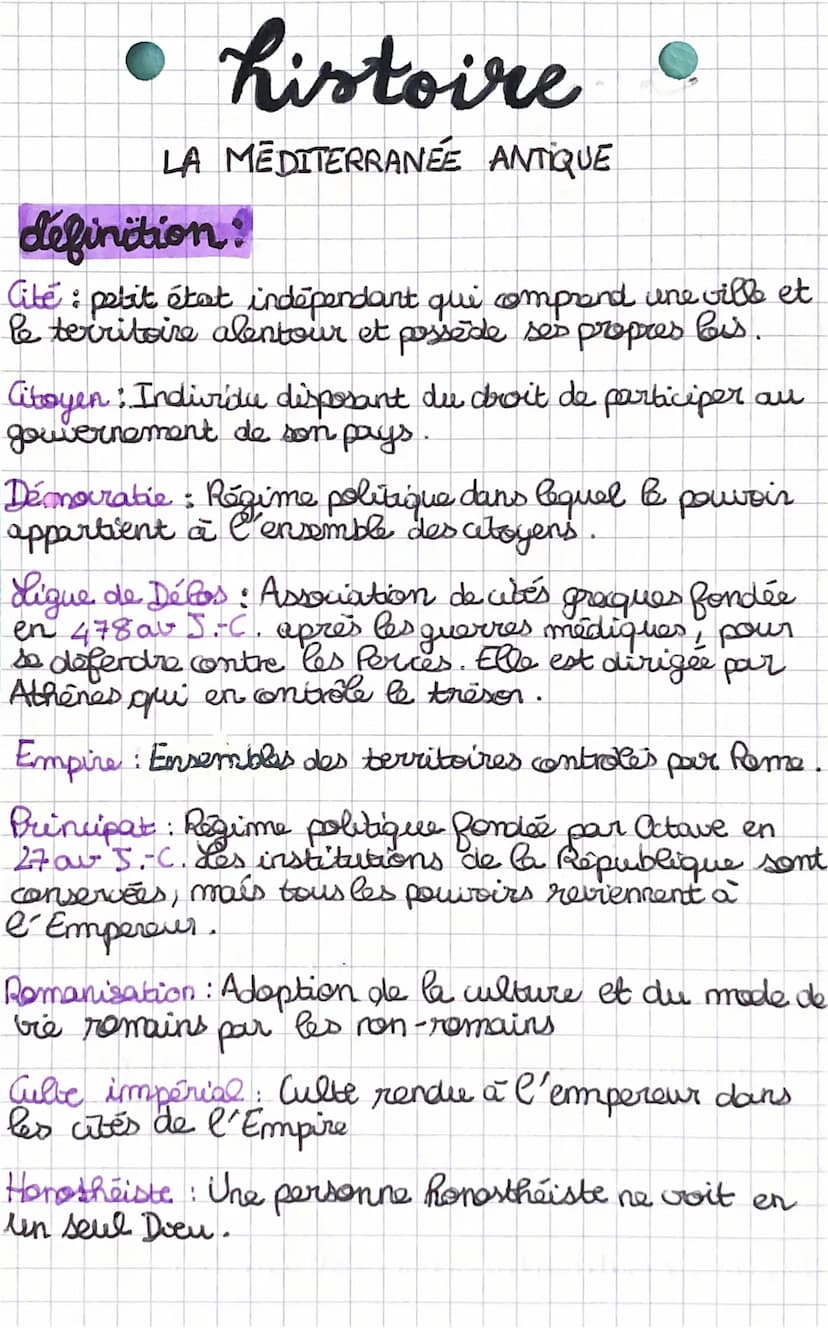 histoire
LA MÉDITERRANÉE ANTIQUE
définition :
Cité : petit état indépendant qui comprend une ville et
le territoire alentour et possède ses propres lois.
Citoyen : Individu disposant du droit de participer au
gouvernement de son pays.
Démocratie : Régime politique dans lequel le pouvoir
appartient à l'ensemble des citoyens.
Ligue de Délos : Association de cités grecques fondée
en 478 av J.-C. après les guerres médiques, pour
se défendre contre les Percès. Elle est dirigée par
Athènes qui en contrôle le trésor.
Empire : Ensembles des territoires contrôlés par Rome.
Principat : Régime politique fondée par Octave en
27 av J.-C. Les institutions de la République sont
conservées, mais tous les pouvoirs reviennent à
l'Empereur.
Romanisation : Adoption de la culture et du mode de
vie romains par les non-romains
Culte impérial : Culte rendu à l'empereur dans
les cités de l'Empire
Monothéiste : Une personne monosthéiste ne croit en
un seul Dieu.